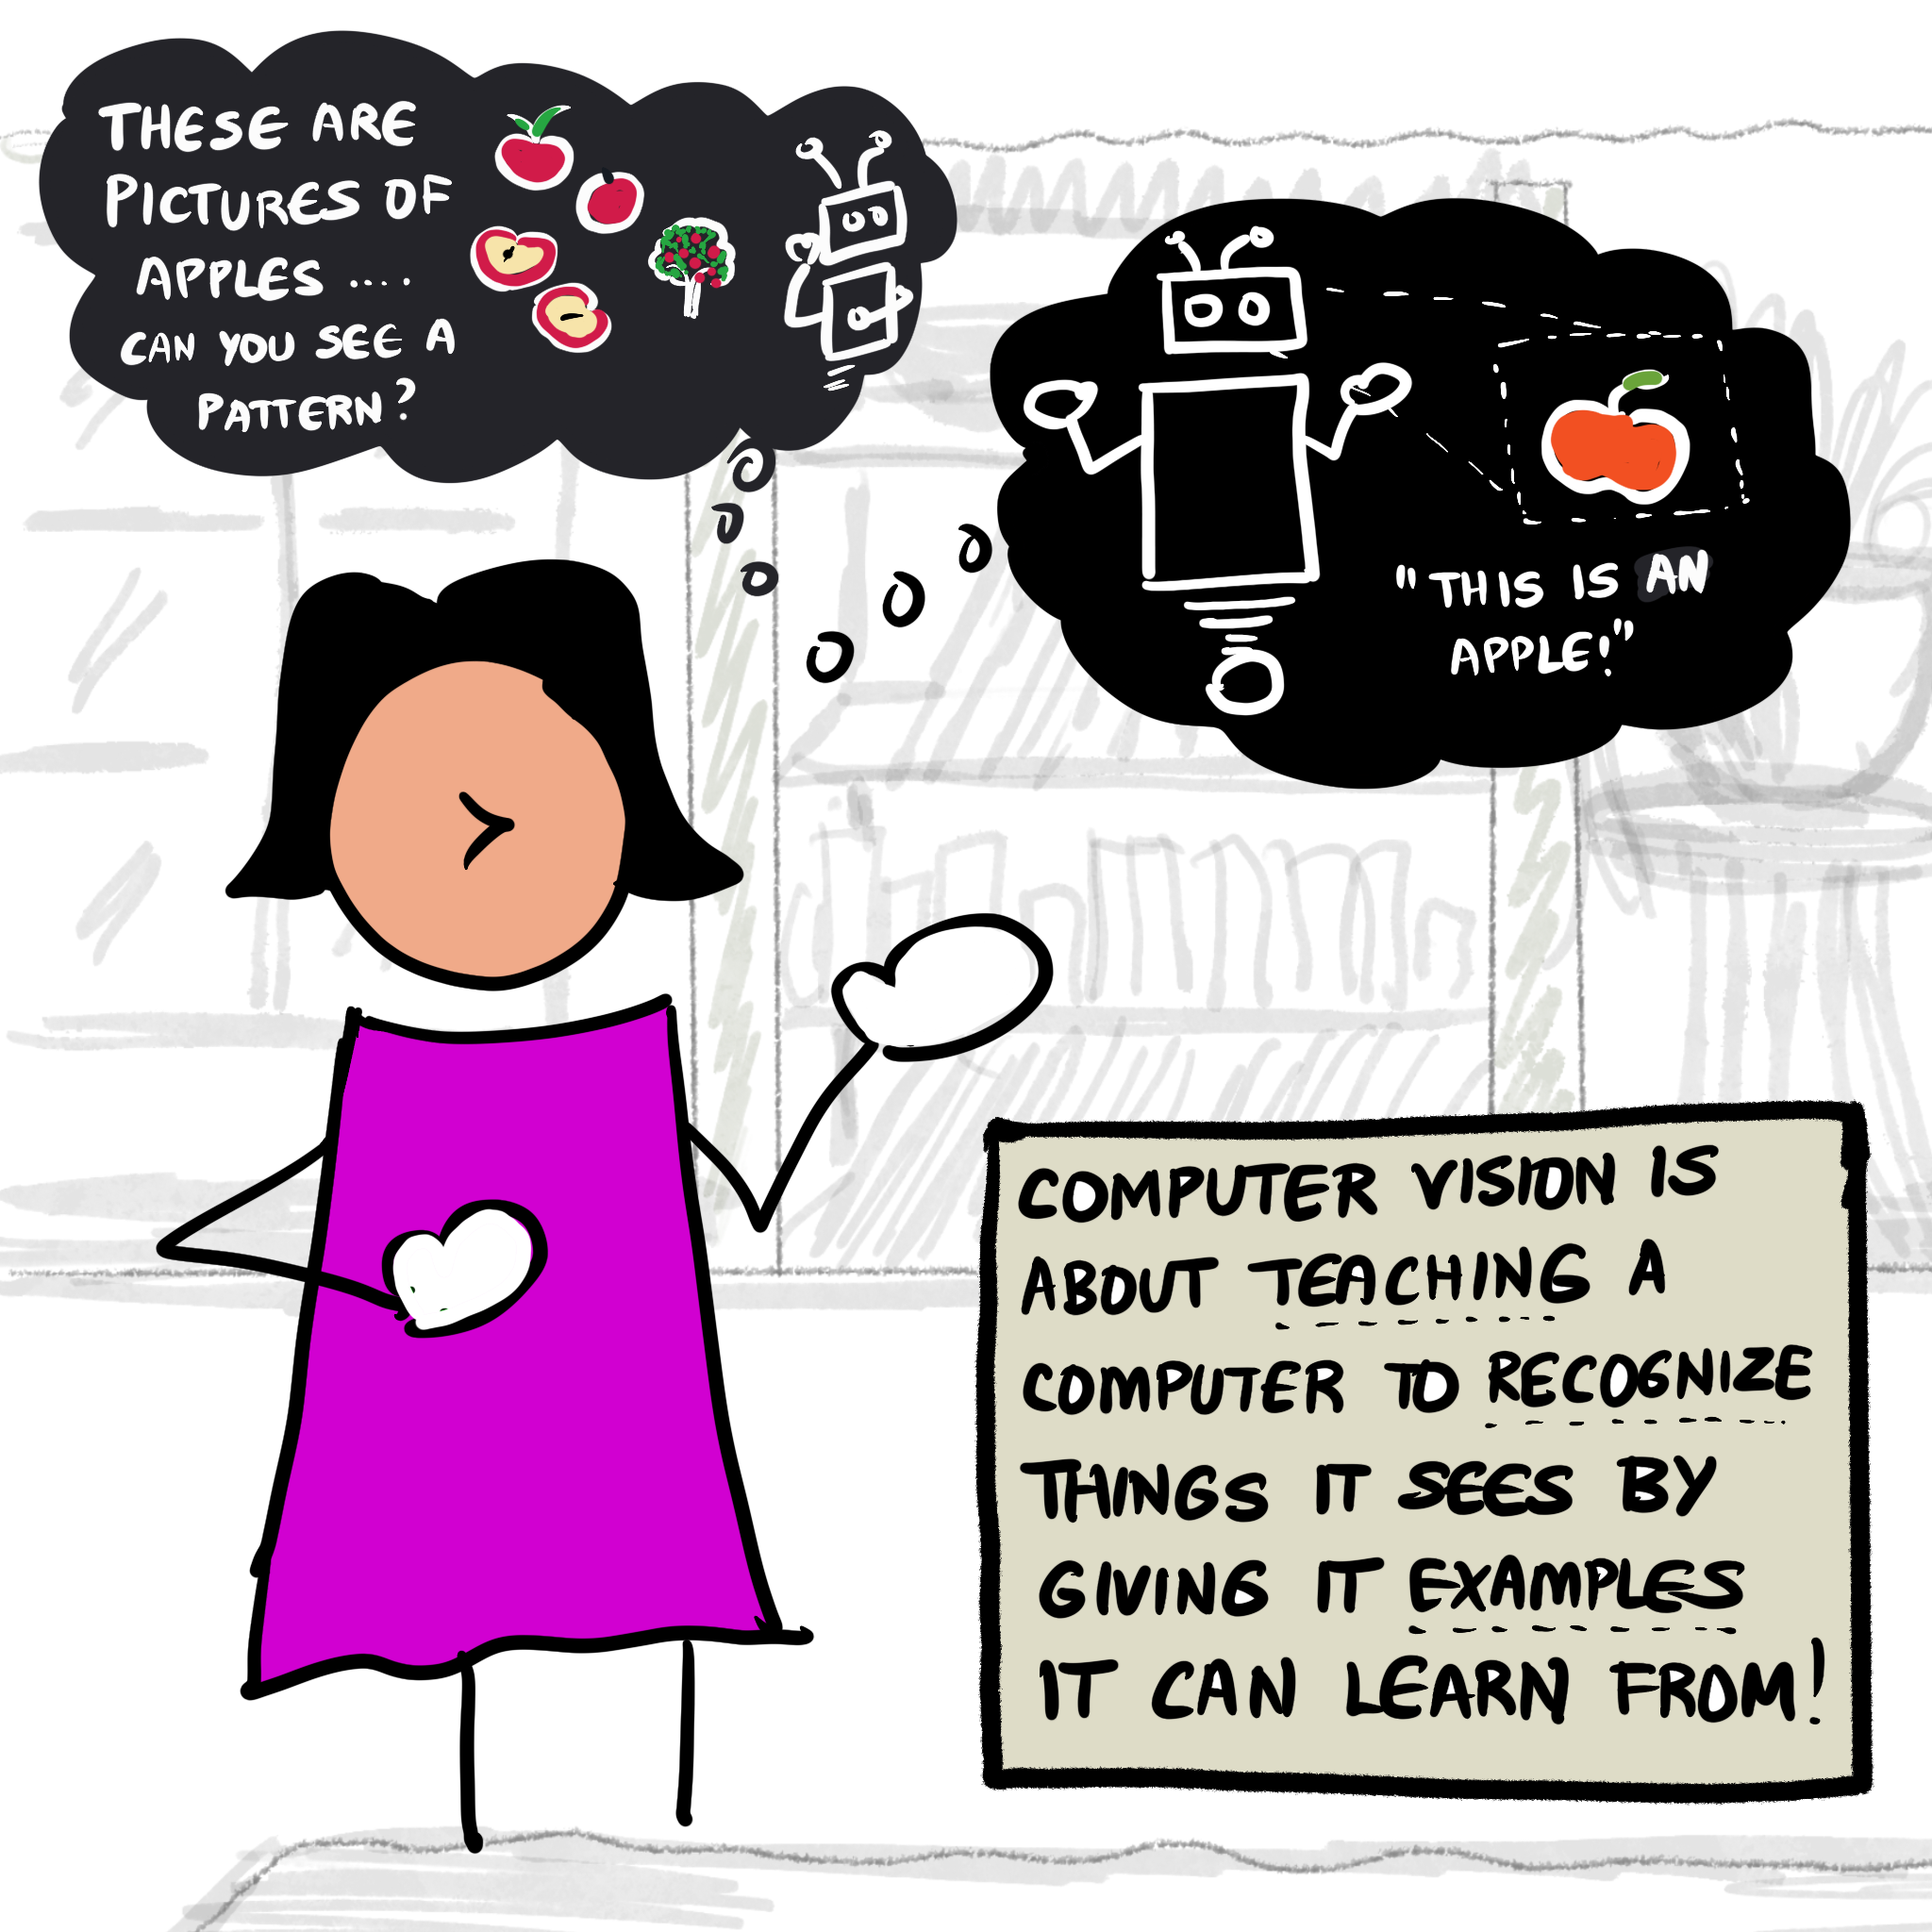 THESE ARE
PICTURES OF
APPLES ....
CAN YOU SEE A
PATTERN?
"THIS IS AN
APPLE!"
COMPUTER VISION IS
ABOUT TEACHING A
COMPUTER TO RECOGNIZE
THINGS IT SEES BY
GIVING IT EXAMPLES
IT CAN LEARN FROM!